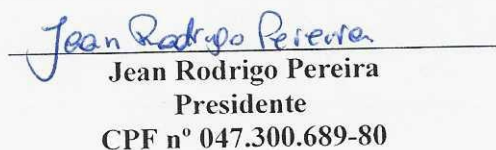 Jean Rodrigo Pereira
Jean Rodrigo Pereira
Presidente
CPF nº 047.300.689-80